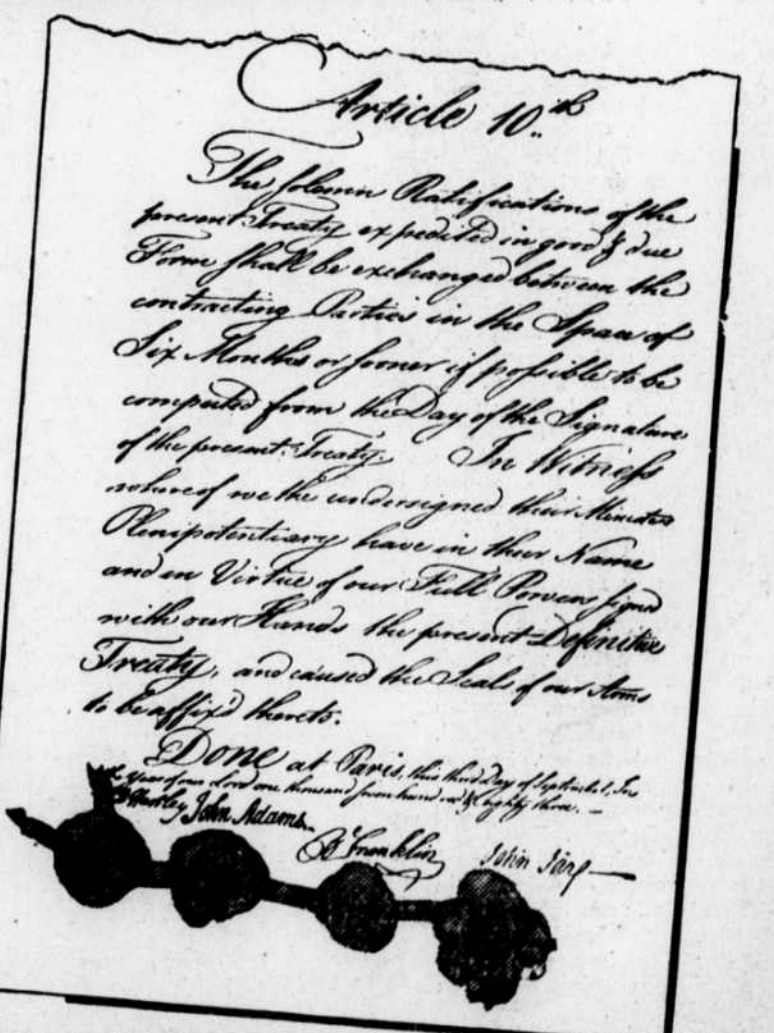 Article 10.th
The solemn Ratifications of the
present Treaty expedited in good & due
Form shall be exchanged between the
contracting Parties in the Space of
Six Months or sooner if possible to be
computed from the Day of the Signature
of the present Treaty. In Witness
whereof we the undersigned their Ministers
Plenipotentiary have in their Name
and in Virtue of our Full Powers signed
with our Hands the present Definitive
Treaty, and caused the Seals of our Arms
to be affix'd thereto.
Done at Paris, this third Day of September, In
Year of our Lord one thousand seven hundred & eighty three.
D Hartley John Adams
B Franklin John Jay